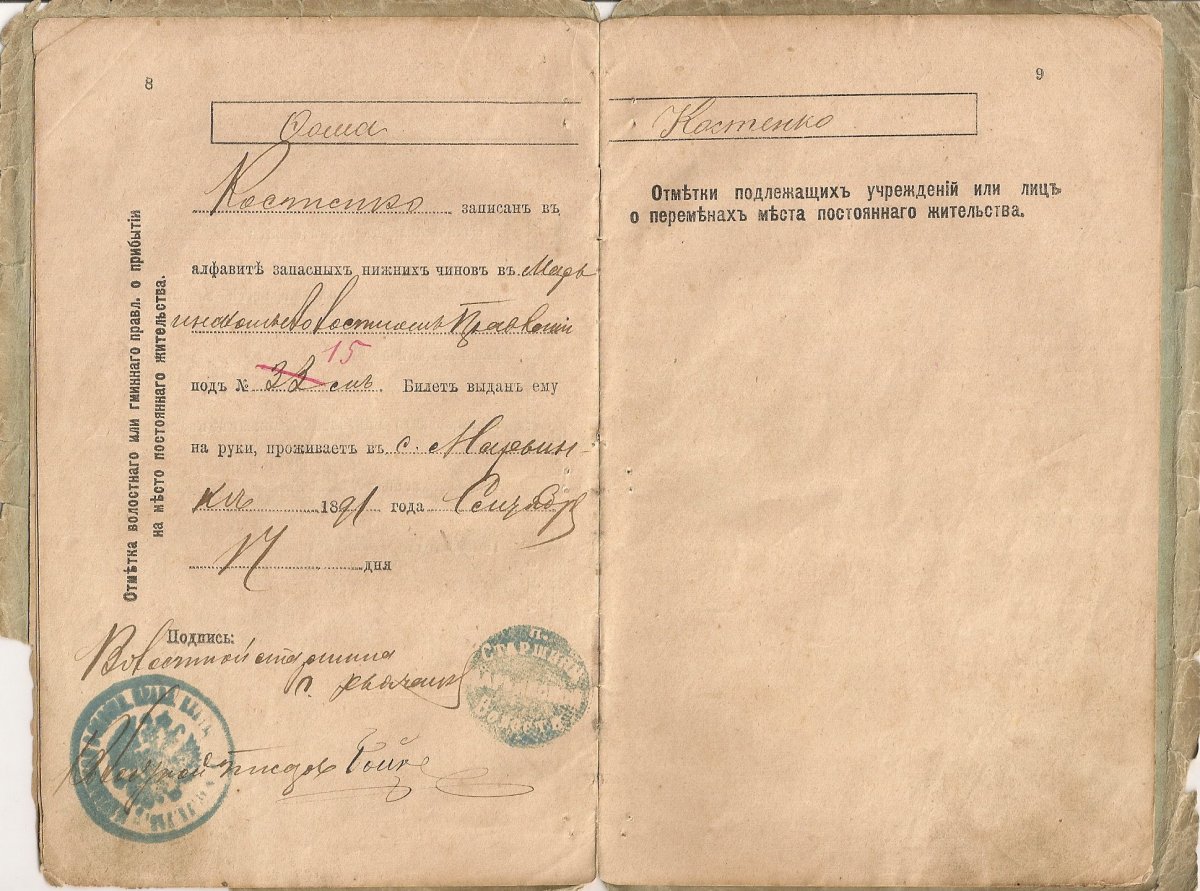 8
Фома
Костенко записанъ въ
алфавитѣ запасныхъ нижнихъ чиновъ въ Марь
инскомъ Волостномъ Правленіи
подъ № 22 15 см. Билетъ выданъ ему
на руки, проживаетъ въ с. Марьин-
кѣ 1891 года Сентября
17 дня
Подпись:
Волостной старшина
Волостной писарь Бойко
Отмѣтка волостнаго или гминнаго правл. о прибытіи
на мѣсто постояннаго жительства.
П.
Старшины
Волости
9
Костенко
Отмѣтки подлежащихъ учрежденій или лицъ
о перемѣнахъ мѣста постояннаго жительства.